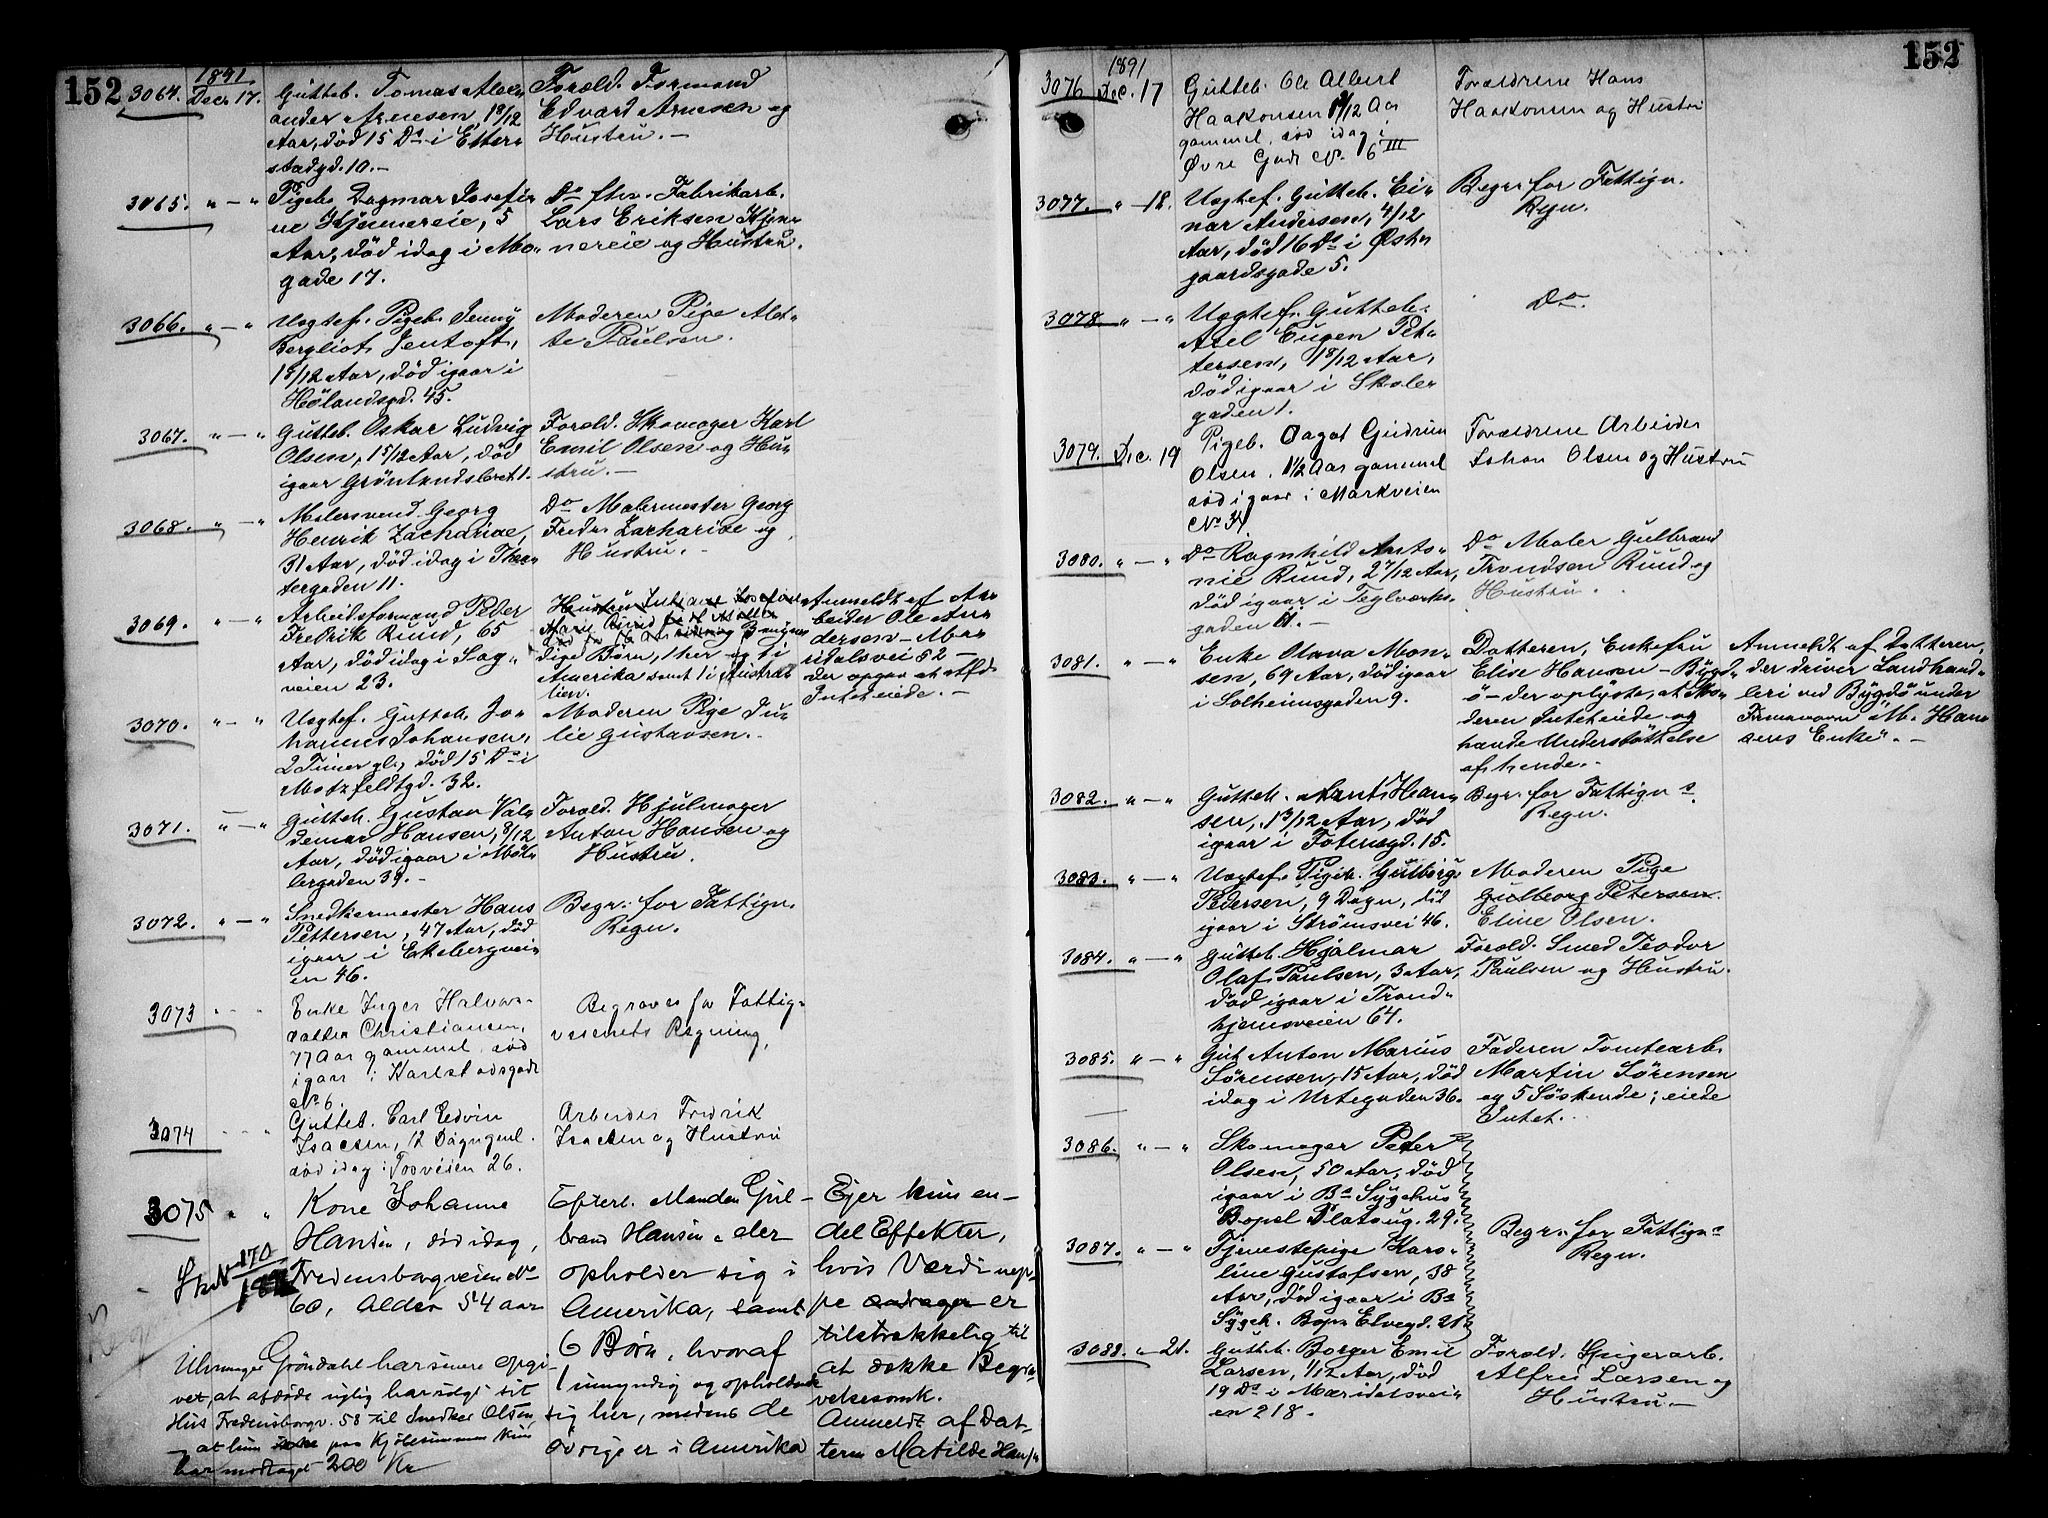 152
1891
3064. Decr 17. Gutteb. Tomas Alex-
ander Arnesen, 18/12
Aar, död 15 Ds i Etter-
stadgd. 10.-
Foræld. Formand
Edvard Arnesen og
Hustru.-
3065. " - " Pigeb. Dagmar Josefi-
ne Kjennereie, 5
Aar, död idag i Mo-
gade 17.
Do fhv. Fabrikarb.
Lars Eriksen Kjen-
nereie og Hustru.
3066. " - " Uægtef. Pigeb. Jenny
Bergliot Jentoft,
18/12 Aar, död igaar i
Hölandsgd. 45.
Moderen Pige
Paulsen.
3067. " - " Gutteb. Oskar Ludvig
Olsen, 15/12 Aar, död
igaar Grönlandsleret 1.
Foræld. Skomager Karl
Emil Olsen og Hu-
stru.-
3068. " - " Malersvend Georg
Henrik Zachariae,
31 Aar, död idag i Thea-
tergaden 11.
Do Malermester Georg
Fredr. Zachariae og
Hustru.-
3069. " - " Arbeidsformand Peder
Fredrik Ruud, 65
Aar, död idag i Sag-
veien 23.
Hustru Josefine
Marie Ruud
3 myn-
dige Börn, 1 her og 1 i
Amerika samt 1 i Austra-
lien.
Anmeldt af Ar-
beider Ole An-
dersen - Ma-
ridalsvei 52 -
der opgav at Afd.
Intet eiede.-
3070. " - " Uægtef. Gutteb. Jo-
hannes Johansen,
2 Timer gl., död 15 Ds i
Motzfeldtgd. 32.
Moderen Pige Ju-
lie Gustavsen.-
3071. " - " Gutteb. Gustav Val-
demar Hansen, 8/12
Aar, död igaar i Möl-
lergaden 39.-
Foræld. Hjulmager
Anton Hansen og
Hustru.
3072. " - " Snedkermester Hans
Pettersen, 47 Aar, död
igaar i Ekebergvei-
en 46.
Begr. for Fattigv.
Regn.
3073 " - " Enke Inger Halvors-
datter Christiansen,
77 Aar gammel, död
igaar i Karlstadsgade
No 6.
Begraves for Fattig-
væsenets Regning,
3074 " - " Gutteb. Carl Edvin
Isacsen, 12 Dage gml.
död idag i Tosveien 26.
Arbeider Fredrik
Isacsen og Hustru
3075 " " Kone Johanne
Hansen, död idag,
Fredensborgveien No
60, Alder 54 aar
Efterl. Manden Gul-
brand Hansen - der
opholder sig i
Amerika, samt
6 Börn, hvoraf
1 umyndig og opholder
sig her, medens de
övrige er i Amerika
Ejer kun en-
del Effekter,
hvis Værdi nep-
pe andrager er
tilstrækkelig til
at dække Begra-
velsesomk.
Anmeldt af Dat-
teren Matilde Hansen
170
Gröndahl har senere opgi-
vet, at afdöde nylig har solgt sit
Hus Fredensborgv. 58 til Snedker Olsen,
- at hun paa Kjöbesummen kun
har modtaget 200 Kr
152
1891
3076 Dec. 17 Gutteb. Ole Albert
Haakonsen 9/12 Aar
gammel, död idag i
Övre Gade No 6 III
Forældrene Hans
Haakonsen og Hustru
3077. " - 18. Uægtef. Gutteb. Ei-
nar Andersen, 4/12
Aar, död 16 Ds i Östr
gaardsgade 5.
Begr. for Fattigv.
Regn.
3078. " - " Uægtef. Gutteb.
Axel Eugen Pet-
tersen, 18/12 Aar,
död igaar i Skole-
gaden 1.
Do.
3079. Dec. 19 Pigeb. Dagot Gudrun
Olsen, 1 1/2 Aar gammel
död igaar i Markveien
No 34
Forældrene Arbeider
Johan Olsen og Hustru
3080. " - " Do Ragnhild Anto-
nie Ruud, 2 7/12 Aar,
död igaar i Teglværks-
gaden 11.-
Do Maler Gulbrand
Trondsen Ruud og
Hustru.
3081. " - " Enke Olava Mon-
sen, 69 Aar, död igaar
i Solheimsgaden 9.
Datteren, Enkefru
Elise Hansen - Bygd-
ö - der oplyste, at Mo-
deren Intet eiede og
havde Understöttelse
af hende.-
Anmeldt af Datteren,
der driver Landhand-
leri ved Bygdö under
Firmanavn "M. Han-
sens Enke".-
3082. " - " Gutteb. Arnt Han-
sen, 13/12 Aar, död
igaar i Totensgd. 15.
Begr. for Fattigvs.
Regn.
3083. " - " Uægtef. Pigeb. Gulborg
Petersen, 9 Dagn, död
igaar i Strömsvei 46.
Moderen Pige
Gulborg Petersen
Eline Olsen.
3084. " - " Gutteb. Hjalmar
Olaf Paulsen, 3 Aar,
död igaar i Trond-
hjemsveien 64.
Foræld. Smed Teodor
Paulsen og Hustru.
3085. " - " Gut Anton Marius
Sörensen, 15 Aar, död
idag i Urtegaden 36.
Faderen Tomtearb.
Martin Sörensen
og 5 Söskende; eiede
Intet.-
3086. " - " Skomager Peder
Olsen, 50 Aar, död
igaar i Bs Sygehus
Bopæl Platoug. 29.
3087. " - " Tjenestepige Karo-
line Gustafsen, 38
Aar, död igaar i Bs
Sygeh. Bopæl Elvegd. 21b
Begr. for Fattigvs
Regn.
3088. " 21. Gutteb. Borger Emil
Larsen, 1/12 Aar, död
19 Ds i Maridalsvei-
en 218.
Foræld. Spigerarb.
Alfred Larsen og
Hustru.-